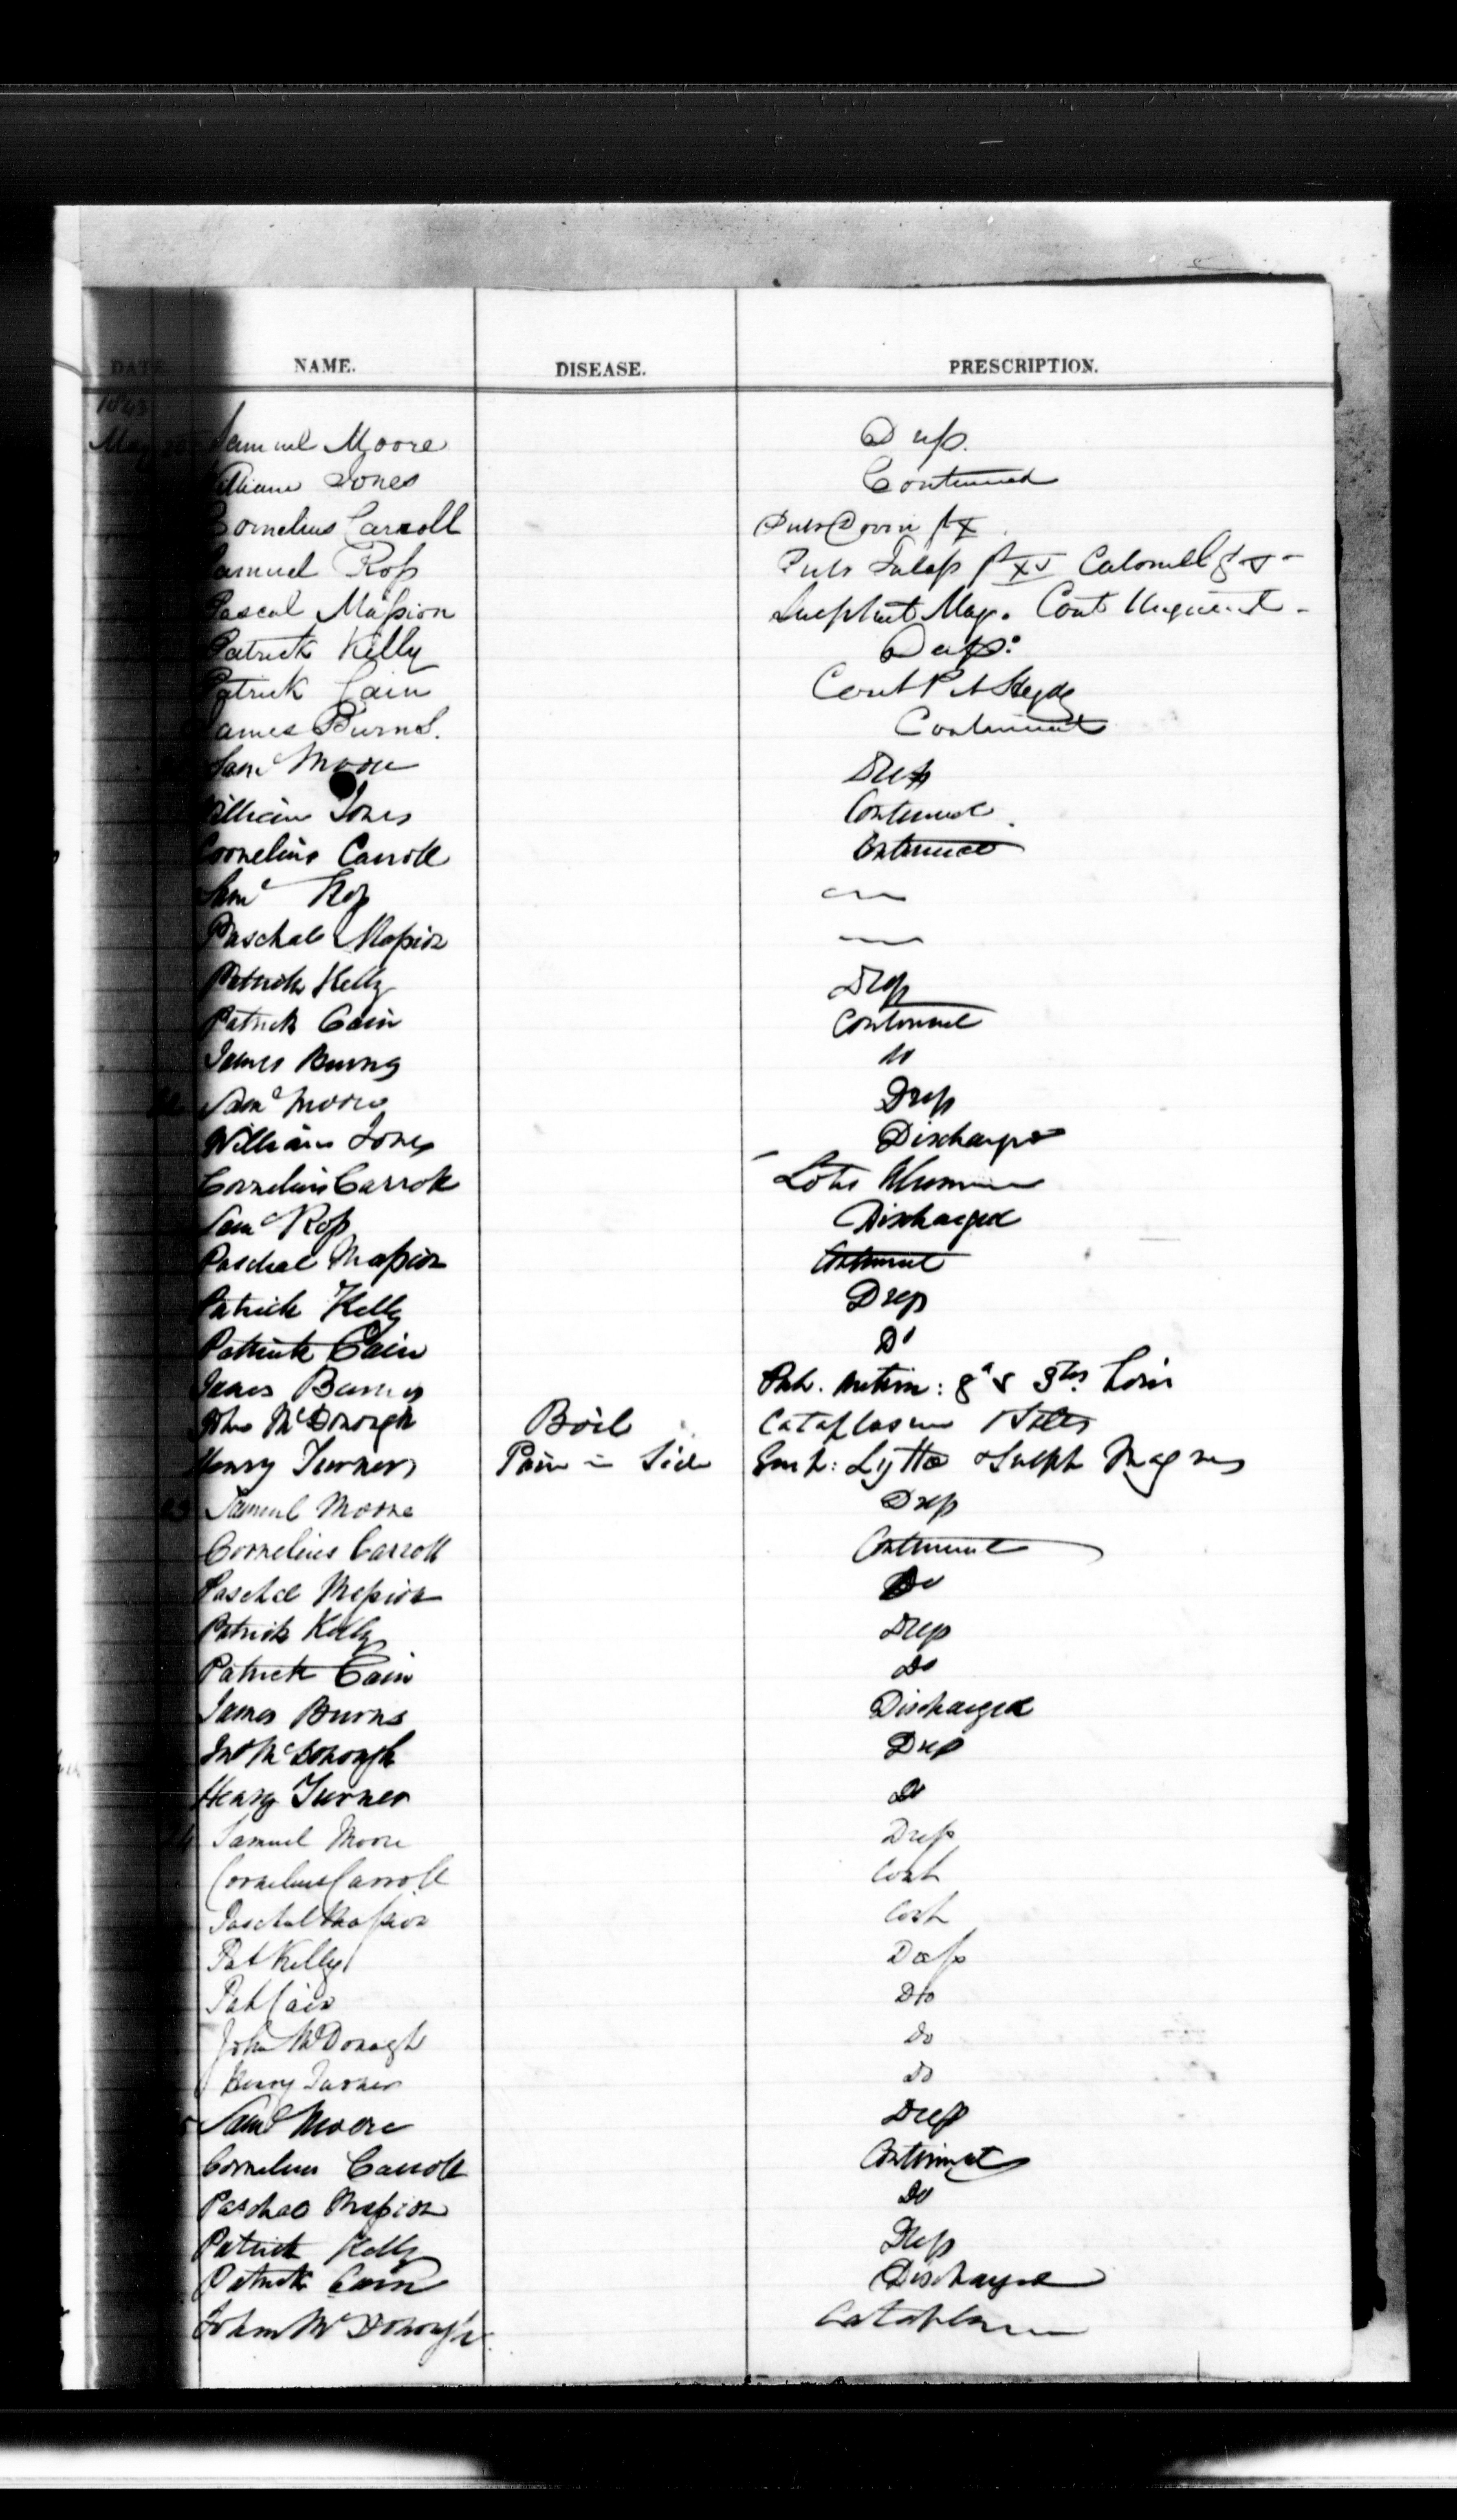 DATE. NAME. DISEASE. PRESCRIPTION.
1843
May 20 Samuel Moore Dress.
William Jones Continued
Cornelius Carroll Pulv Dovri gr X
Samuel Ross Pulv Jalap gr XV Calomel gr V
Pascal Massion Sulphat Mag. Cont Unguent
Patrick Kelly Dress:
Patrick Cain Cont
James Burns. Continued
Saml Moore Dress
William Jones Continued
Cornelius Carroll Continued
Saml Ross —
Paschal Massion —
Patrick Kelly Dress
Patrick Cain Continued
James Burns Do
Saml Moore Dress
William Jones Discharged
Cornelius Carroll Lotio Alumin
Saml Ross Discharged
Paschal Massion Continued
Patrick Kelly Dress
Patrick Cain Do
James Burns Pulv. Antim: gr v 3tr
John McDonough Boil Cataplasm
Henry Turner Pain in Side Emp: Lyttae Sulph Magnes
23 Samuel Moore Dress
Cornelius Carroll Continued
Paschal Massion Do
Patrick Kelly Dress
Patrick Cain Do
James Burns Discharged
Jno McDonough Dress
Henry Turner Do
24 Samuel Moore Dress
Cornelius Carroll Cont
Paschal Massion Cont
Pat Kelly Dress
Pat Cain Do
John McDonagh Do
Henry Turner Do
Saml Moore Dress
Cornelius Carroll Continued
Paschal Massion Do
Patrick Kelly Dress
Patrick Cain Discharged
John McDonough Cataplasm